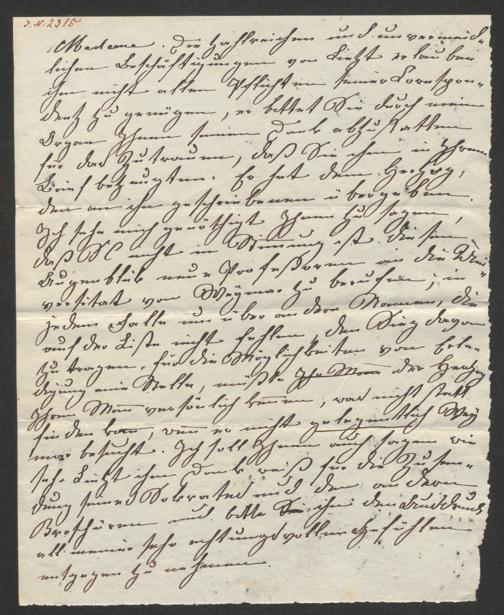 J.N. 2315
Madame. Die zahlreichen und unvermeid-
lichen Beschäftigungen von Liszt erlauben
ihm nicht allen Pflichten seiner Correspon-
denz zu genügen, er bittet Sie durch mein
Organ Ihnen seinen Dank abzustatten
für das Zutrauen, daß Sie ihm in Ihrem
Brief bezeugten. Er hat dem Herzog,
den an ihn geschriebenen übergeben.
Ich sehe mich genöthigt Ihnen zu sagen,
daß SE nicht in Stimmung ist diesen
Augenblick neue Professoren an die Uni-
versität von Weymar zu berufen; in
jedem Falle um über andere Namen, die
auf der Liste nicht fehlen den Sieg davon
zu tragen, für die Möglichkeiten von Erle-
digung eine Stelle, müßte Ihr Mann der Herzog
Ihren Mann persönlich kennen, was nicht statt
finden kann, wenn er nicht gelegentlich Wey
mar besucht. Ich soll Ihnen auch sagen wie
sehr Liszt ihm Dank weiß für die Zusen-
dung seines Sokrates und der andern
Broschüren und bitte Sie ihm den Ausdruck
all meiner sehr achtungsvollen Gefühlen
entgegen zu nehmen.